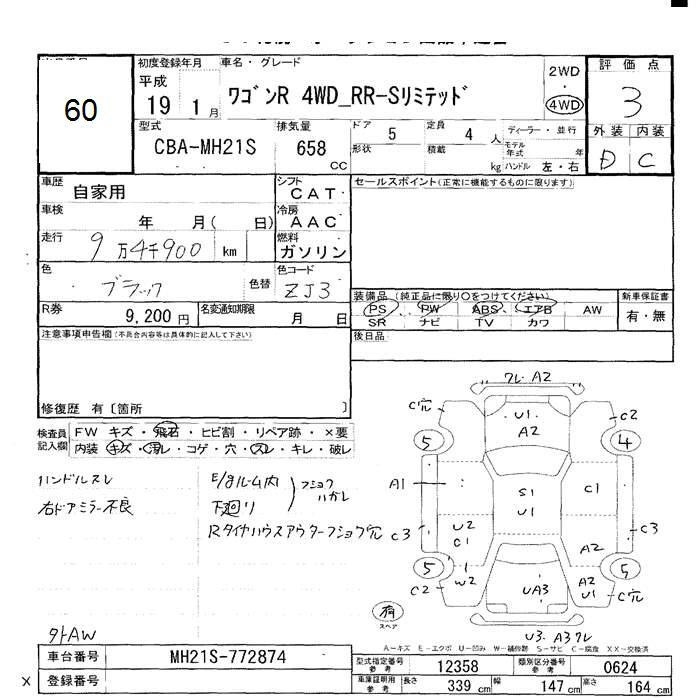 60
初度登録年月
平成
19 1月
車名・グレード
ワゴンR 4WD_RR-Sリミテッド
2WD
・
4WD
評価点
3
外装 内装
D C
型式
CBA-MH21S
排気量
658
CC
ドア 5
形状
定員 4 人
積載 kg
ディーラー・並行
モデル年式 年
ハンドル 左・右
車歴 自家用
シフト CAT
車検 年 月( 日)
冷房 AAC
走行 9万4千900 km
燃料 ガソリン
色 ブラック 色替
色コード ZJ3
R券 9,200円
名変通知期限 月 日
セールスポイント(正常に機能するものに限ります)
装備品 (純正品に限り○をつけてください)
PS PW ABS エアB AW
SR ナビ TV カワ
新車保証書
有・無
後日品
注意事項申告欄(不具合内容等は具体的に記入して下さい)
修復歴 有〔箇所 〕
検査員記入欄
FW キズ・飛石・ヒビ割・リペア跡・×要
内装 キズ・汚レ・コゲ・穴・スレ・キレ・破レ
ハンドルスレ
右ドアミラー不良
E/gルーム内
下廻り
フショクハガレ
Rタイヤハウスアウターフショク穴
外AW
ワレ・A2
C穴
U1
A2
C2
5
4
A1
S1
U1
C1
U2
C1
C3
C3
A2
5
W2
C2
UA3
A2
U1
5
C穴
U3・A3ワレ
有
スペア
A-キズ E-エクボ U-凹み W-補修跡 S-サビ C-腐食 XX-交換済
車台番号 MH21S-772874
× 登録番号
型式指定番号 参考 12358
類別区分番号 参考 0624
車庫証明用 参考 長さ 339 cm 幅 147 cm 高さ 164 cm